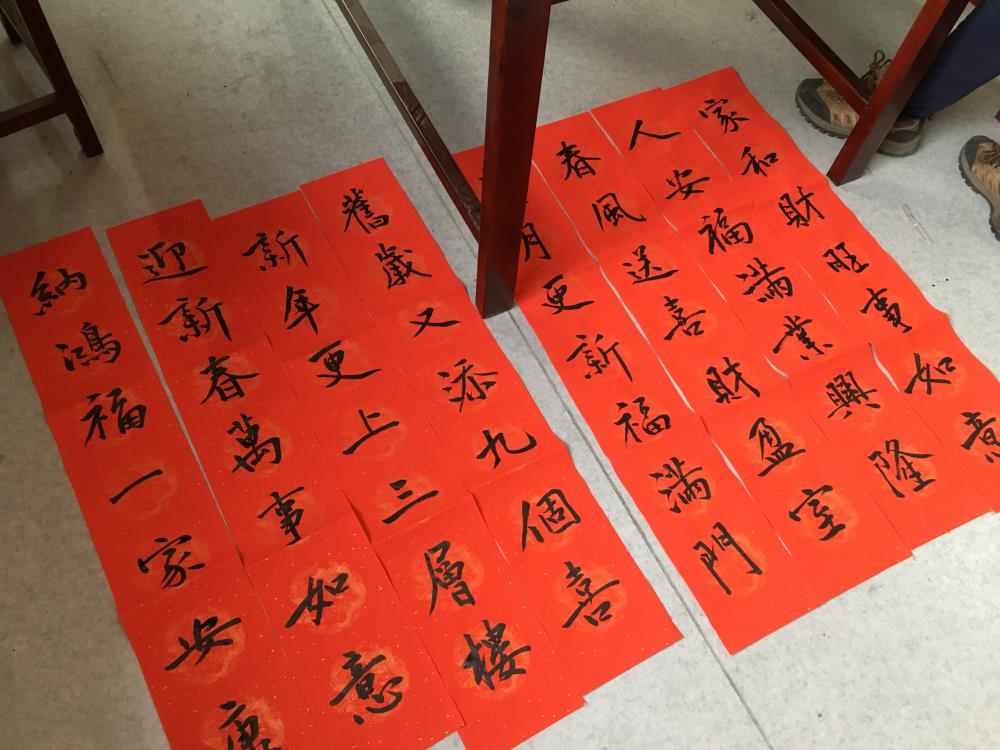 家和財旺事如意
人安福滿業興隆
春風送喜財盈室
月更新福滿門
舊歲又添九個喜
新年更上三層樓
迎新春萬事如意
納鴻福一家安康